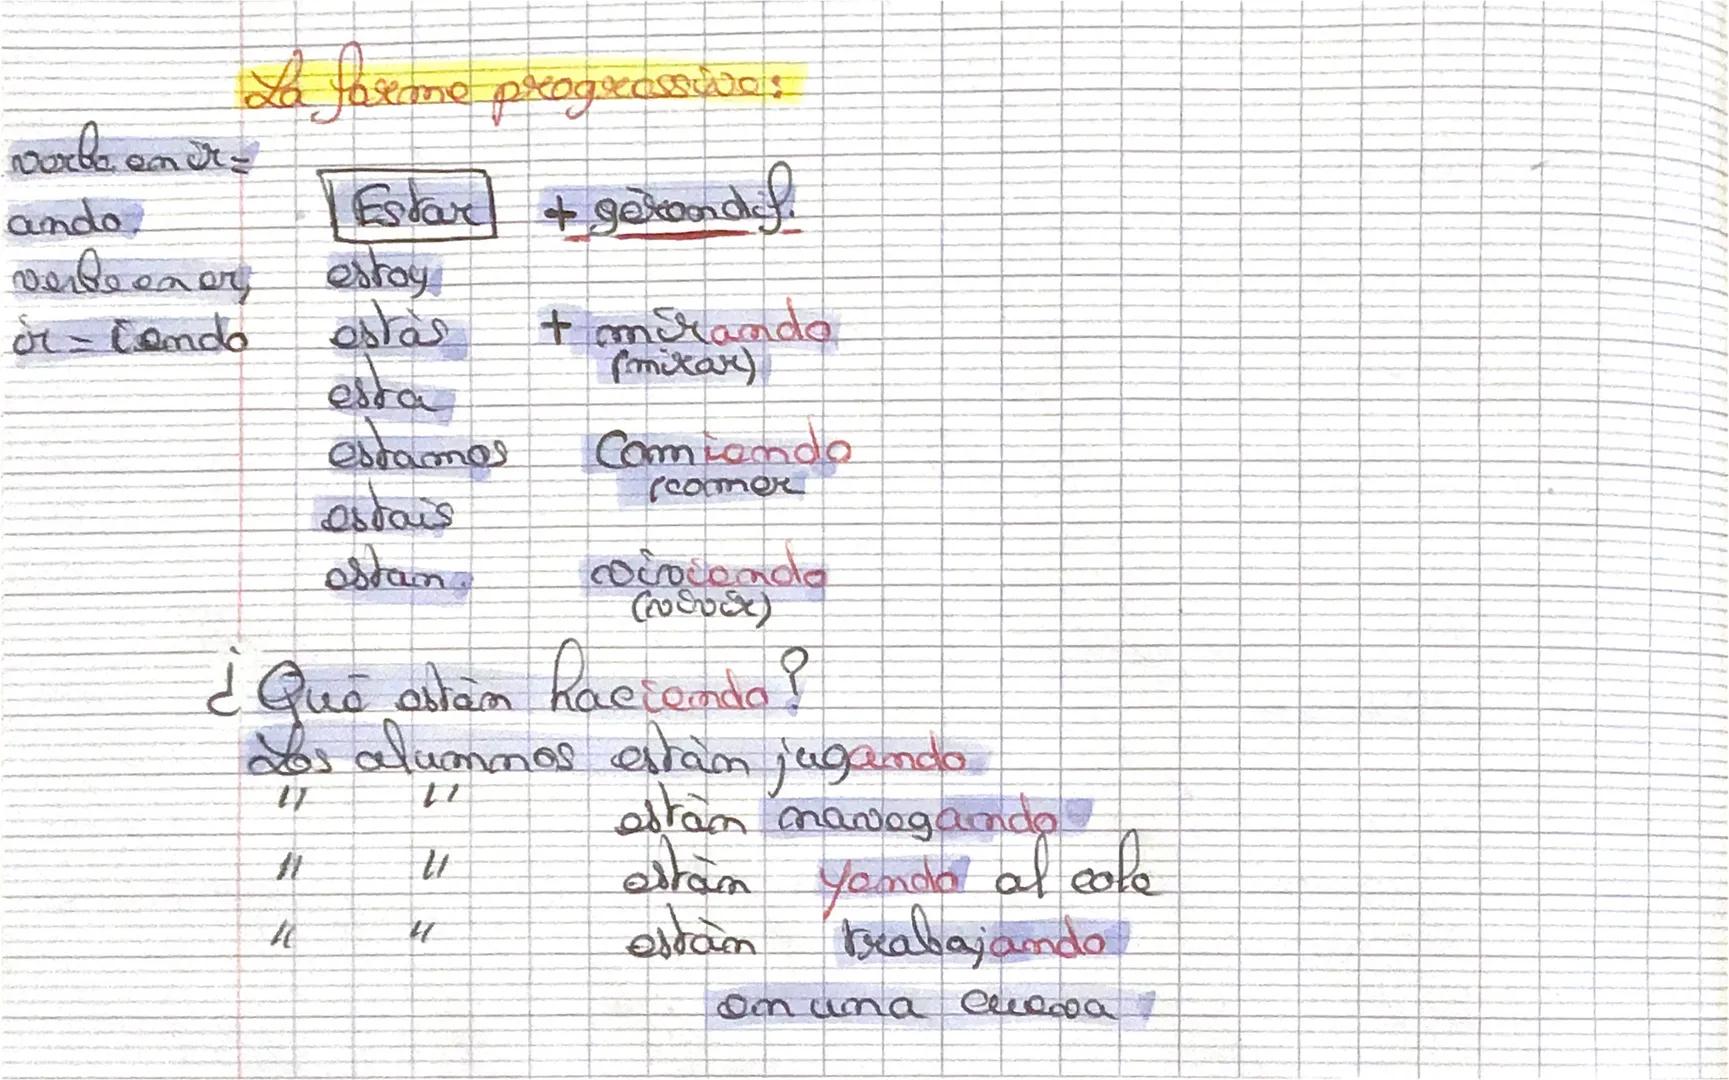 La forme progressive :
verbe en ir =
ando.
verbe en er,
ir = iendo
Estar + gérondif.
estoy
estàs + mirando
(mirar)
esta
estamos Comiendo
(comer
estais
estan. viviendo
(vivir)
¿ Qué estàn haciendo ?
Los alumnos estàn jugando
" " estàn navegando
" " estàn yendo al cole
" " estàn trabajando
en una cueva